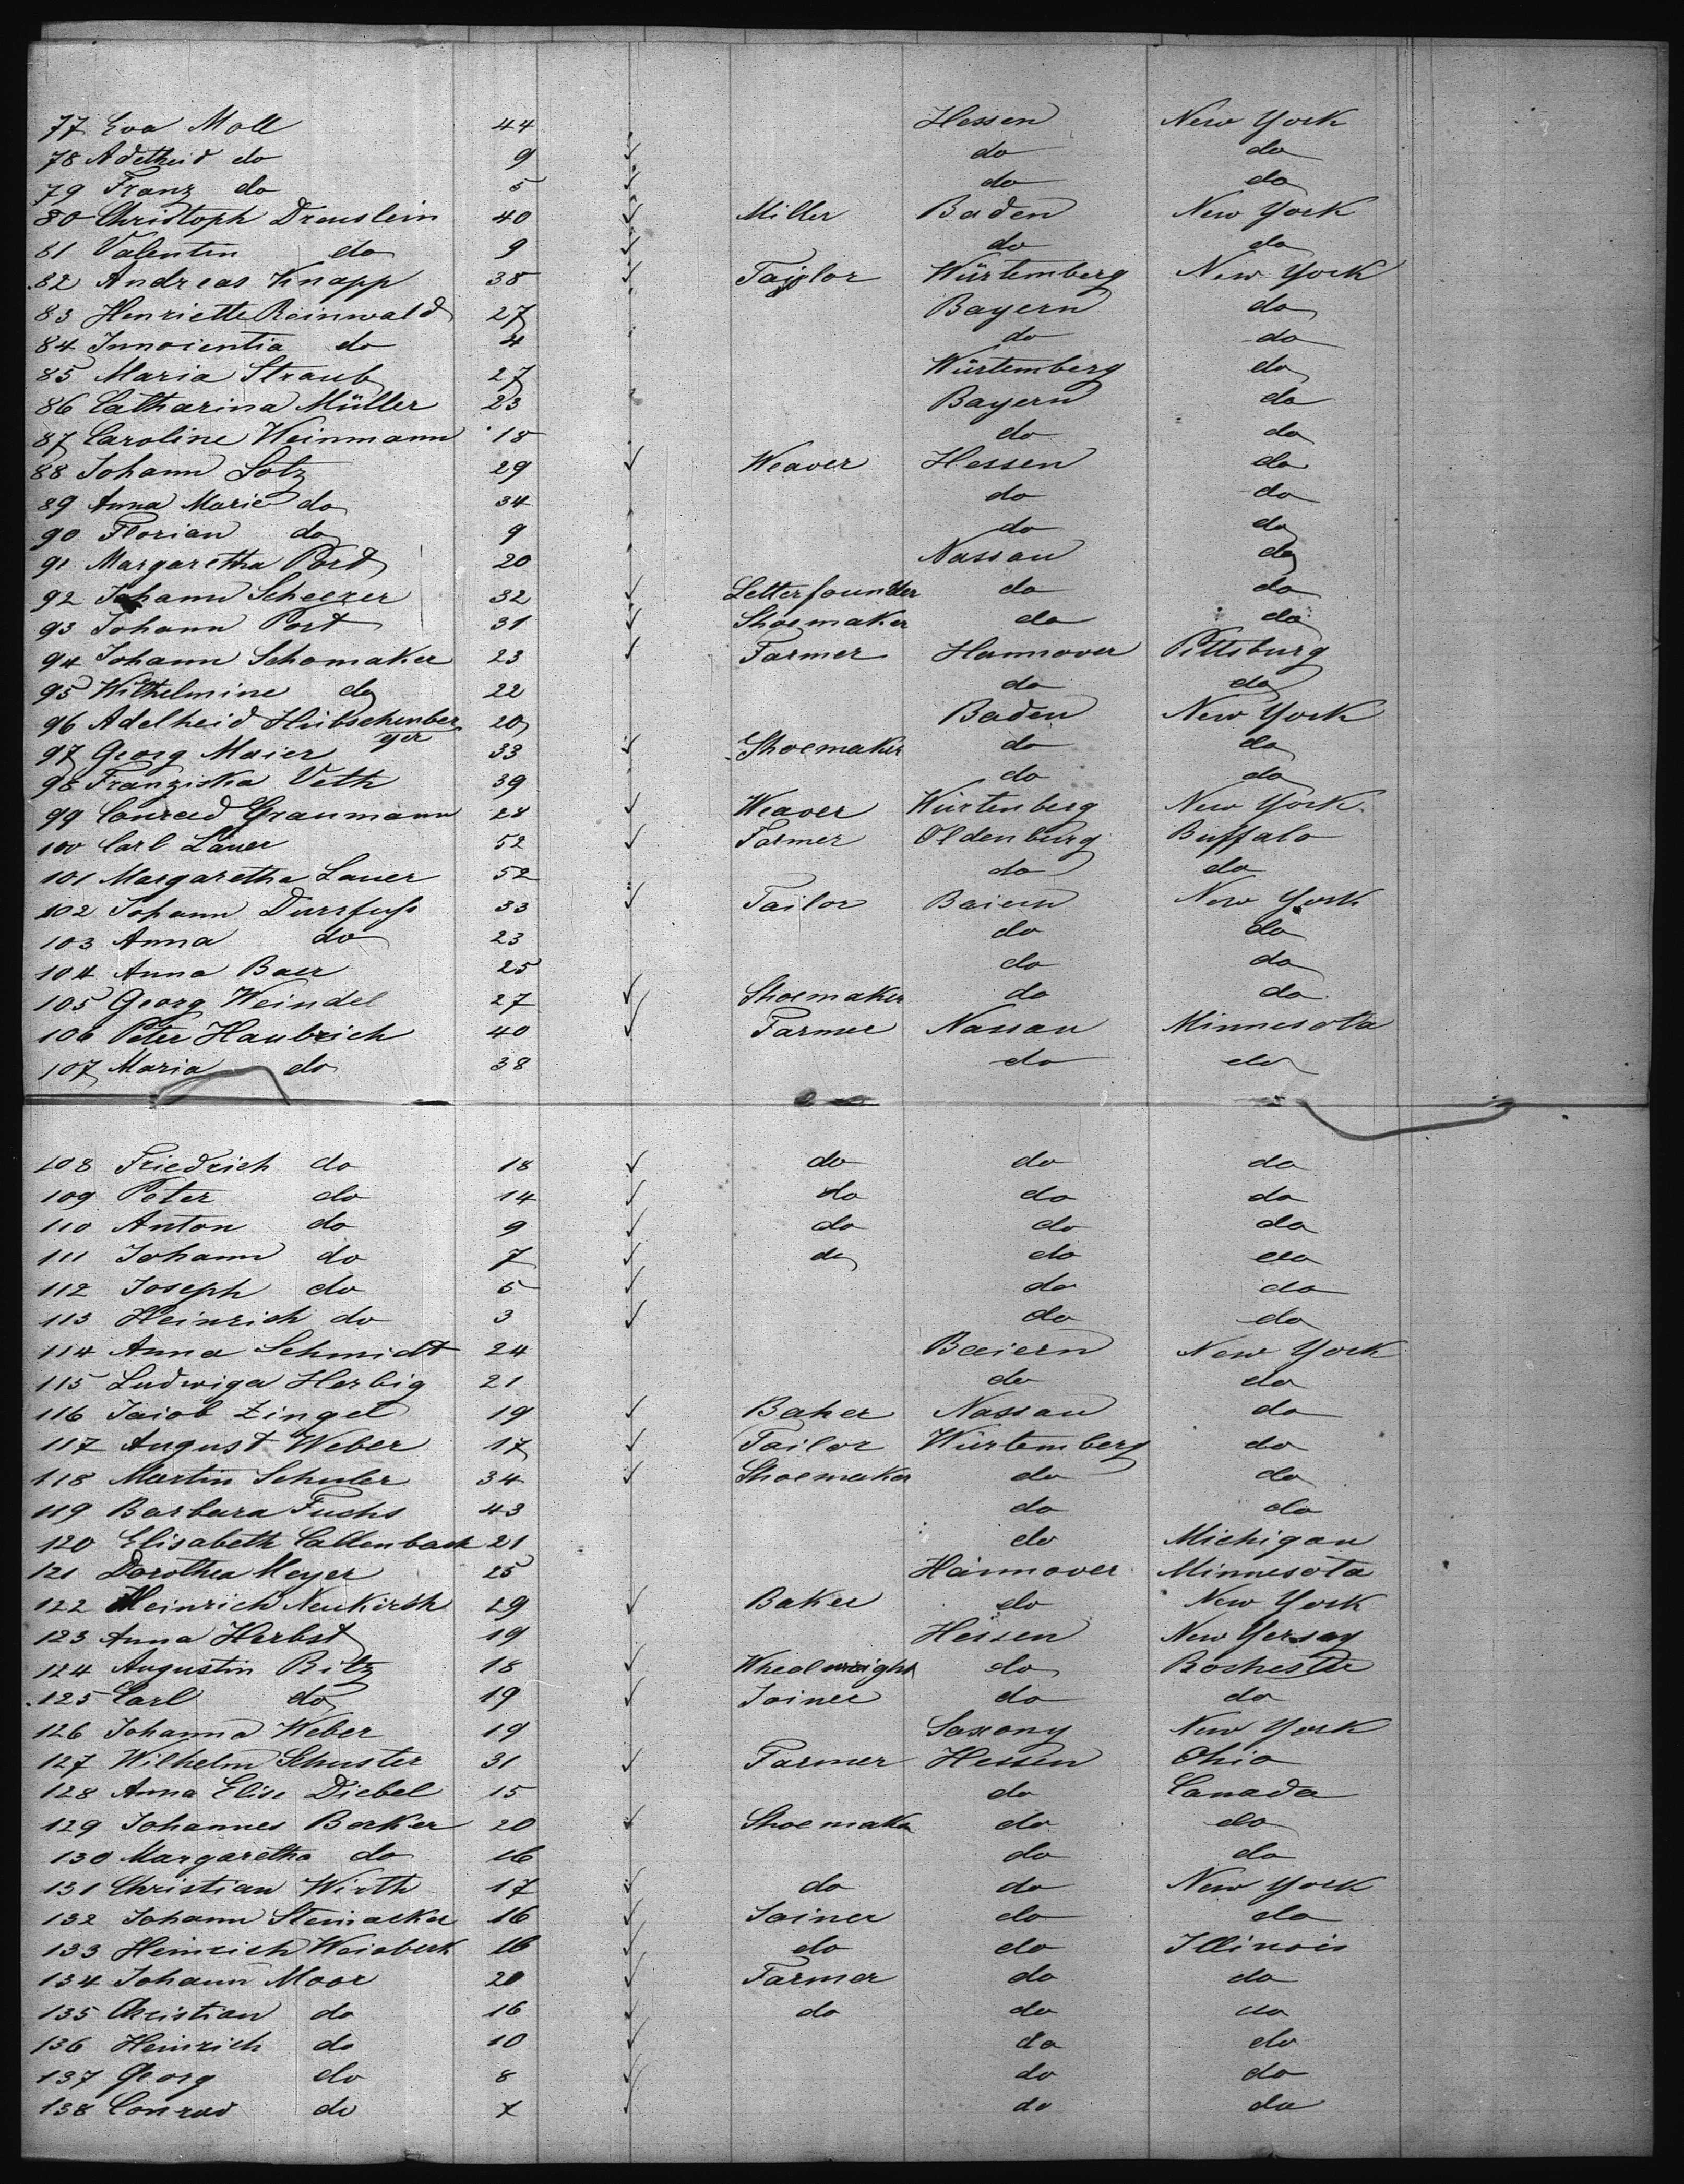 77 Eva Moll 44 Hessen New York
78 Adelheid do 9 do do
79 Franz do 5 do do
80 Christoph Dreuslein 40 Miller Baden New York
81 Valentin do 9 do do
82 Andreas Knapp 38 Taylor Würtemberg New York
83 Henriette Reinwald 27 Bayern do
84 Innocentia do 4 do do
85 Maria Straub 27 Würtemberg do
86 Catharina Müller 23 Bayern do
87 Caroline Weinmann 18 do do
88 Johann Lotz 29 Weaver Hessen do
89 Anna Marie do 34 do do
90 Florian do 9 do do
91 Margaretha Port 20 Nassau do
92 Johann Scheerer 32 Letterfounder do do
93 Johann Port 31 Shoemaker do do
94 Johann Schomaker 23 Farmer Hannover Pittsburg
95 Wilhelmine do 22 do do
96 Adelheid Hübschenber 20 Baden New York
ger
97 Georg Maier 33 Shoemaker do do
98 Franziska Veth 39 do do
99 Conrad Graumann 28 Weaver Würtenberg New York
100 Carl Lauer 52 Farmer Oldenburg Buffalo
101 Margaretha Lauer 52 do do
102 Johann Durrfuss 33 Tailor Baiern New York
103 Anna do 23 do do
104 Anna Baer 25 do do
105 Georg Weindel 27 Shoemaker do do
106 Peter Haubrich 40 Farmer Nassau Minnesota
107 Maria do 38 do do
108 Friedrich do 18 do do do
109 Peter do 14 do do do
110 Anton do 9 do do do
111 Johann do 7 do do do
112 Joseph do 5 do do
113 Heinrich do 3 do do
114 Anna Schmidt 24 Baiern New York
115 Ludwiga Herbig 21 do do
116 Jacob Zingel 19 Baker Nassau do
117 August Weber 17 Tailor Würtemberg do
118 Martin Schuler 34 Shoemaker do do
119 Barbara Fuchs 43 do do
120 Elisabeth Callenbach 21 do Michigan
121 Dorothea Meyer 25 Hannover Minnesota
122 Heinrich Neukirch 29 Baker do New York
123 Anna Herbst 19 Hessen New Yersey
124 Augustin Bitz 18 Wheelwright do Rochester
125 Carl do 19 Joiner do do
126 Johanna Weber 19 Saxony New York
127 Wilhelm Schuster 31 Farmer Hessen Ohio
128 Anna Elise Diebel 15 do Canada
129 Johannes Becker 20 Shoemaker do do
130 Margaretha do 16 do do
131 Christian Wirth 17 do do New York
132 Johann Steinacker 16 Joiner do do
133 Heinrich Weisbeck 16 do do Illinois
134 Johann Moor 20 Farmer do do
135 Christian do 16 do do do
136 Heinrich do 10 do do
137 Georg do 8 do do
138 Conrad do 7 do do